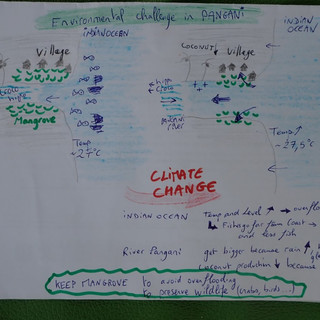 Environmental challenge in PANGANI
INDIAN OCEAN
INDIAN OCEAN
Village
COCONUT
Village
high
close
Mangrove
PANGANI
river
Temp
~27°C
Temp
~27,5°C
CLIMATE
CHANGE
INDIAN OCEAN
Temp and Level → overflo
Fishing far from Coast
and less fish
River Pangani
got bigger because rain
coconut production ↓ because
KEEP MANGROVE to avoid overflooding
to preserve wildlife (crabs, birds ...)